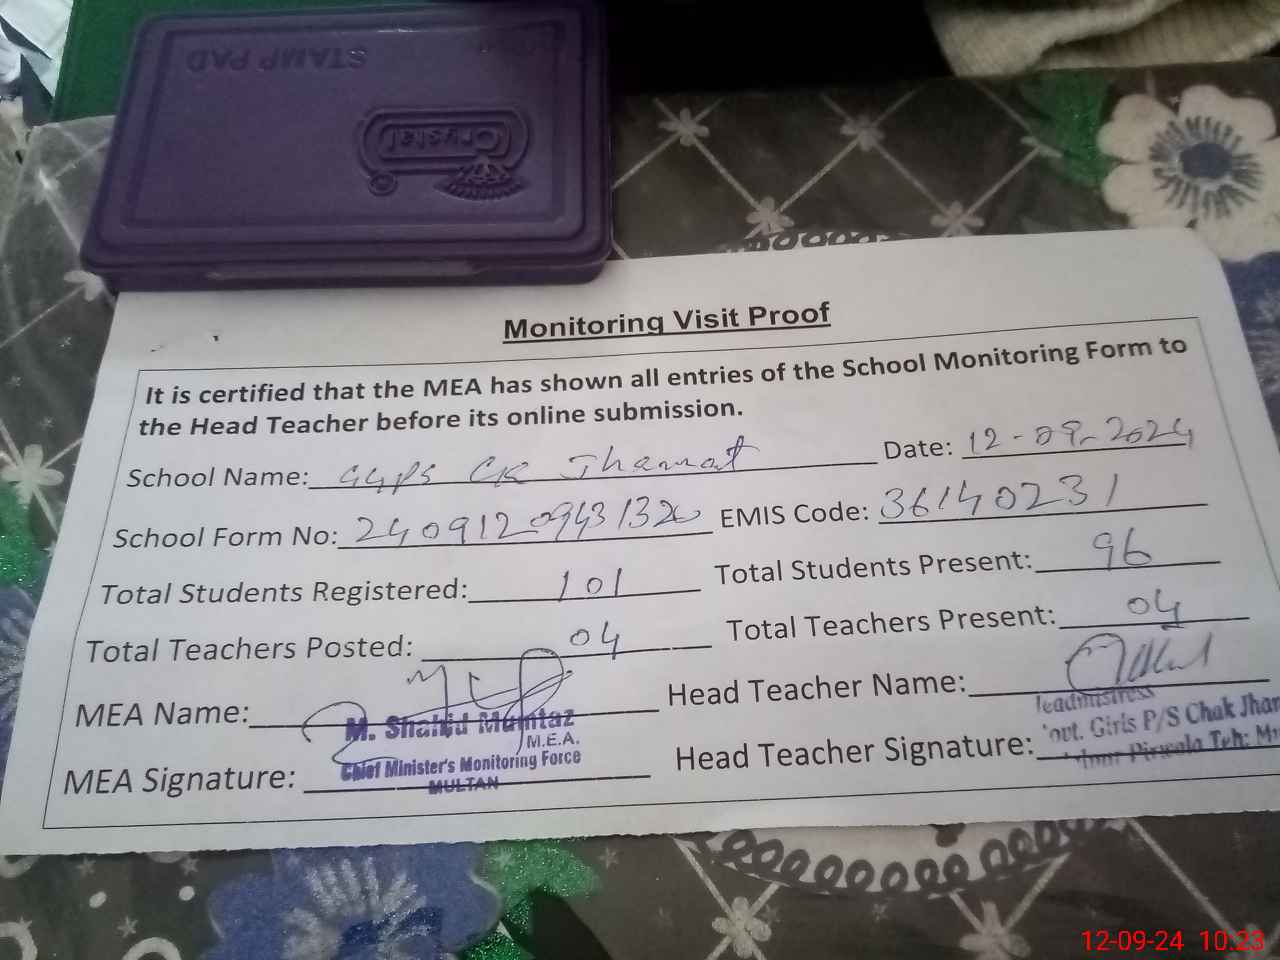 STAMP PAD
Crystal
Monitoring Visit Proof
It is certified that the MEA has shown all entries of the School Monitoring Form to
the Head Teacher before its online submission.
School Name: GGPS CK Jhamat Date: 12-09-2024
School Form No: 24091209431320 EMIS Code: 36140231
Total Students Registered: 101 Total Students Present: 96
Total Teachers Posted: 04 Total Teachers Present: 04
MEA Name: Head Teacher Name:
M. Shahid Mumtaz
M.E.A.
Chief Minister's Monitoring Force
MULTAN
MEA Signature: Head Teacher Signature:
Headmistress
Govt. Girls P/S Chak Jham
Pirwala Teh:
12-09-24 10:23